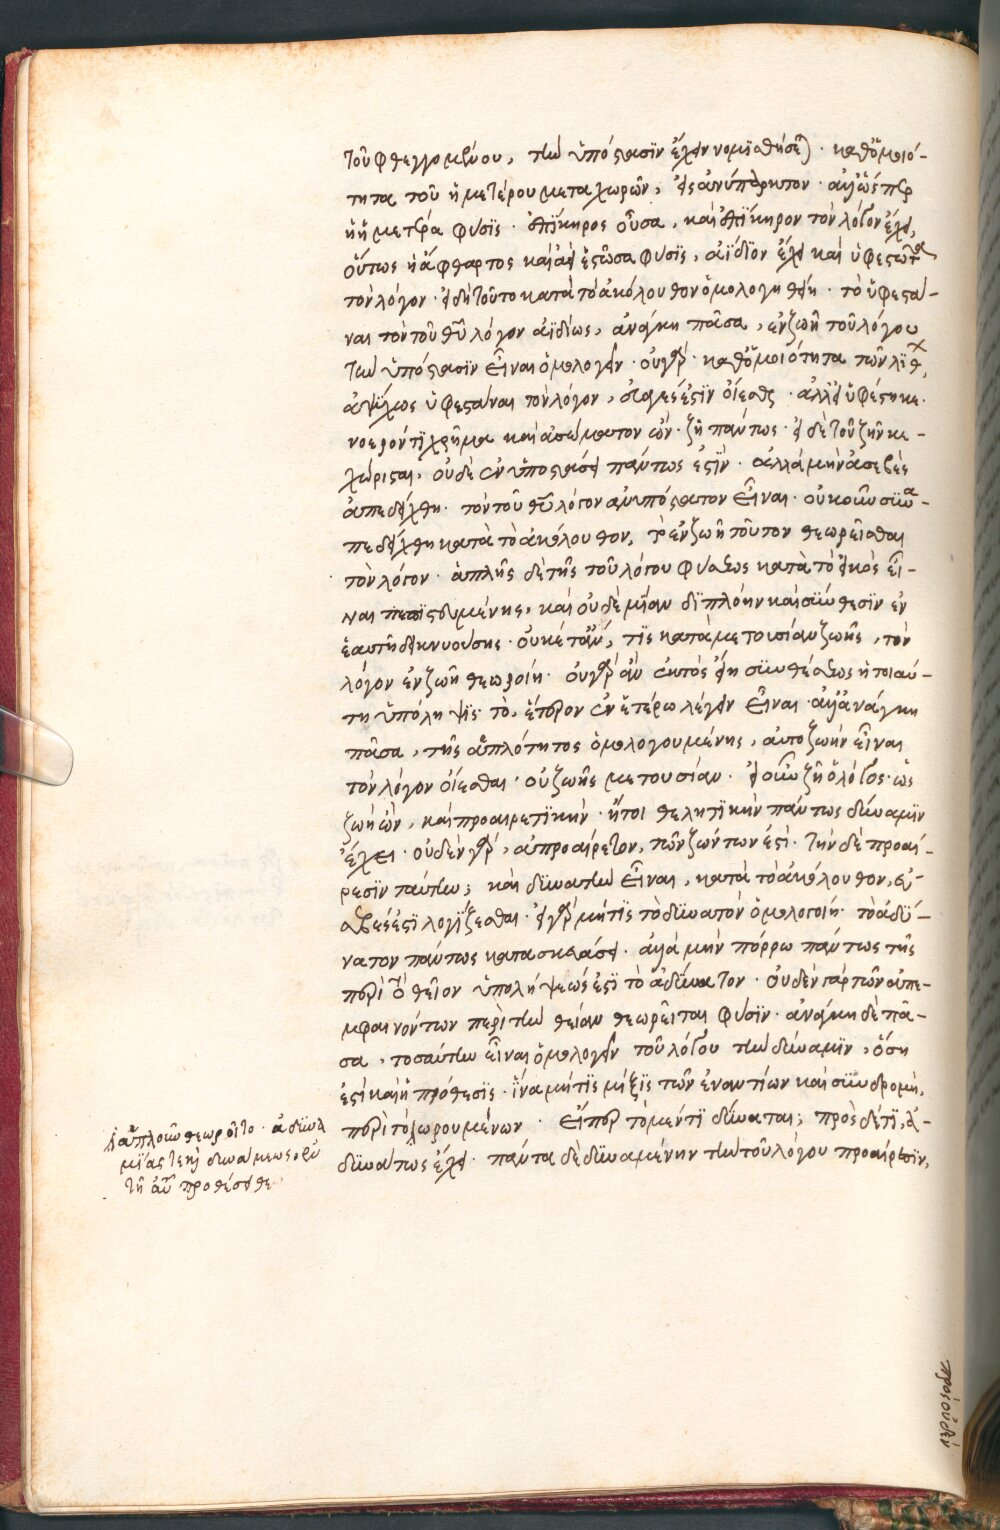 τοῦ φθεγγομένου, τὴν ὑπόστασϊν ἔχειν νομϊσθήσεται· καθ' ὁμοιό-
τητα τοῦ ἡμετέρου μεταχωρῶν, εἰς ἀνύπαρκτον· ἀλλ' ὥσπερ
ἡ ἡμετέρα φύσϊς· ἐπΐκηρος οὖσα, καὶ ἐπΐκηρον τὸν λόγον ἔχει,
οὕτως ἡ ἄφθαρτος καὶ ἀεὶ ἑστῶσα φύσϊς, ἀΐδϊον ἔχει καὶ ὑφεστῶτα
τὸν λόγον· εἰ δὴ τοῦτο κατὰ τὸ ἀκόλουθον ὁμολογηθείη· τὸ ὑφεστά-
ναι τὸν τοῦ θεοῦ λόγον ἀϊδίως, ἀνάγκη πᾶσα, ἐν ζωῆ τοῦ λόγου
τὴν ὑπόστασϊν εἶναι ὁμολογεῖν· οὐ γὰρ καθ' ὁμοιότητα τῶν λίθ,
ἀψύχως ὑφεστάναι τὸν λόγον, εὐαγές ἐστϊν οἴεσθαι· ἀλλ' εἰ ὑφέστηκε·
νοερόν τϊ χρῆμα καὶ ἀσώματον ὤν· ζῆ πάντως· εἰ δὲ τοῦ ζῆν κε-
χώρισται, οὐδὲ ἐν ὑποστάσει πάντως ἐστΐν· ἀλλὰ μὴν ἀσεβὲς
ἀπεδείχθη· τὸν τοῦ θεοῦ λόγον ἀνυπόστατον εἶναι· οὐκοῦν συνα-
πεδείχθη κατὰ τὸ ἀκόλουθον, τὸ ἐν ζωῆ τοῦτον θεωρεῖσθαι
τὸν λόγον· ἁπλῆς δὲ τῆς τοῦ λόγου φύσεως κατὰ τὸ εἰκὸς εἶ-
ναι πεπϊστευμένης, καὶ οὐδὲ μΐαν διπλόην καὶ σύνθεσϊν ἐν
ἑαυτῆ δεικνυούσης· οὐκέτ' ἄν, τϊς κατὰ μετουσίαν ζωῆς, τὸν
λόγον ἐν ζωῆ θεωροίη· οὐ γὰρ ἂν ἐκτὸς εἴη συνθέσεως ἡ τοιαύ-
τη ὑπόληψϊς τὸ, ἕτερον ἐν ἑτέρω λέγειν εἶναι· ἀλλ' ἀνάγκη
πᾶσα, τῆς ἁπλότητος ὁμολογουμένης, αὐτοζωὴν εἶναι
τὸν λόγον οἴεσθαι· οὐ ζωῆς μετουσίαν· εἰ οὖν ζῆ ὁ λόγος· ὡς
ζωὴ ὢν, καὶ προαιρετϊκὴν· ἤτοι θελητϊκὴν πάντως δύναμϊν
ἔχει· οὐδὲν γὰρ, ἀπροαίρετον, τῶν ζώντων ἐστὶ· τὴν δὲ προαί-
ρεσϊν ταύτην, καὶ δϋνατὴν εἶναι, κατὰ τὸ ἀκόλουθον, εὐ-
σεβές ἐστϊ λογΐζεσθαι· εἰ γὰρ μή τϊς τὸ δϋνατὸν ὁμολογοίη· τὸ ἀδύ-
νατον πάντως κατασκευάσει· ἀλλὰ μὴν πόρρω πάντως τῆς
περὶ τὸ θεῖον ὑπολήψεώς ἐστϊ τὸ ἀδύνατον· οὐδὲν γὰρ τῶν ἀπε-
μφαινόντων περὶ τὴν θείαν θεωρεῖται φύσϊν· ἀνάγκη δὲ πᾶ-
σα, τοσαύτην εἶναι ὁμολογεῖν τοῦ λόγου τὴν δύναμϊν, ὅση
ἐστὶ καὶ ἡ πρόθεσϊς· ἵνα μή τϊς μΐξϊς τῶν ἐναντίων καὶ συνδρομὴ,
περὶ τὸ θεωρουμένων· Εἴπερ τὸ μέν τϊ δύναται, πρὸς δέ τϊ, ἀ-
δϋνάτως ἔχει· πάντα δὲ δϋναμένην τὴν τοῦ λόγου προαίρεσϊν,
ἁπλοῦν θεωροῖτο· ἀδϋνα
μΐας τε καὶ δυνάμεως, ἐν
τῆ αὐτῆ προθέσει θε
πρὸς οὐδὲν